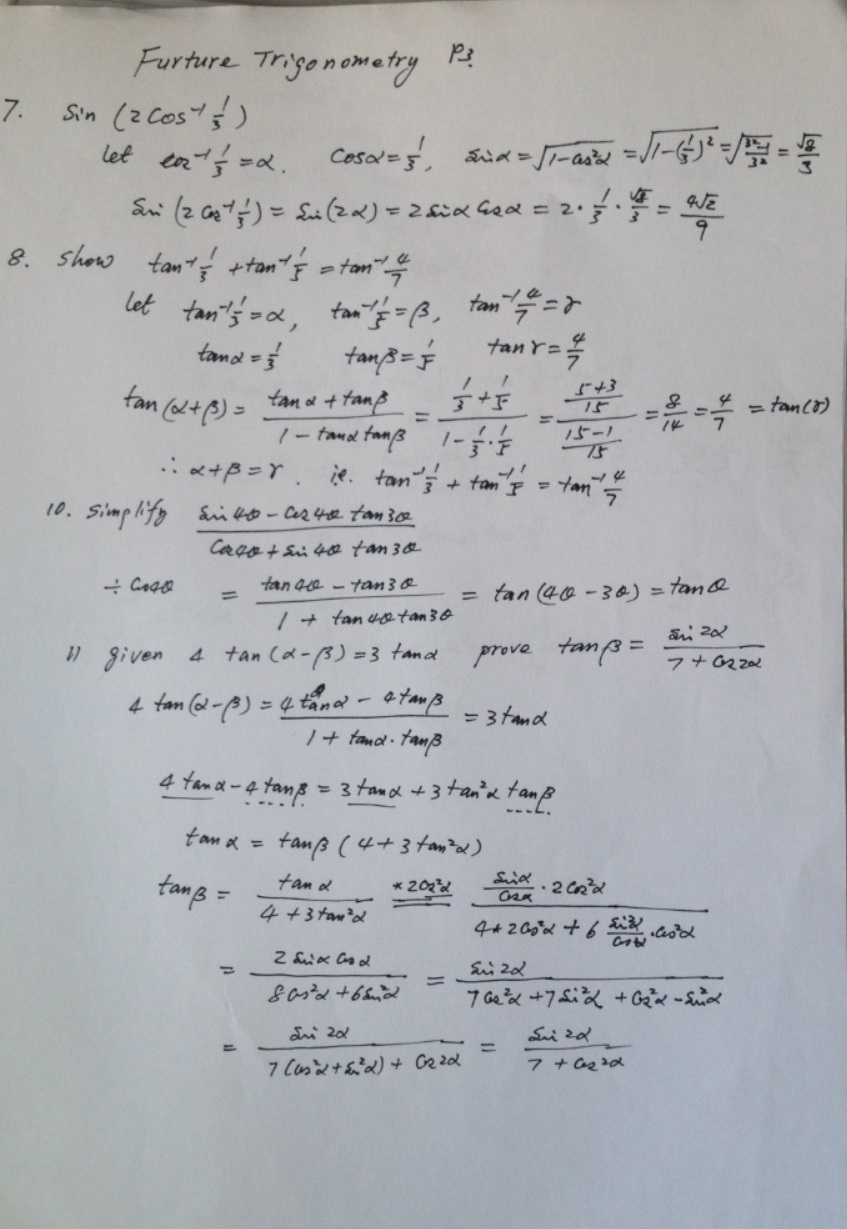 Furture Trigonometry P3.
7. Sin (2 Cos⁻¹ 1/3)
let cos⁻¹ 1/3 = α. Cosα = 1/3, sinα = √(1-cos²α) = √(1-(1/3)²) = √((3²-1)/3²) = √8/3
Sin (2 cos⁻¹ 1/3) = Sin(2α) = 2 sinα cosα = 2 · 1/3 · √8/3 = 4√2/9
8. Show tan⁻¹ 1/3 + tan⁻¹ 1/5 = tan⁻¹ 4/7
let tan⁻¹ 1/3 = α, tan⁻¹ 1/5 = β, tan⁻¹ 4/7 = γ
tanα = 1/3 tanβ = 1/5 tanγ = 4/7
tan (α+β) = (tanα + tanβ)/(1 - tanα tanβ) = (1/3 + 1/5)/(1 - 1/3 · 1/5) = ((5+3)/15)/((15-1)/15) = 8/14 = 4/7 = tan(γ)
∴ α+β = γ. ie. tan⁻¹ 1/3 + tan⁻¹ 1/5 = tan⁻¹ 4/7
10. Simplify (sin 4θ - cos 4θ tan 3θ)/(cos 4θ + sin 4θ tan 3θ)
÷ cos4θ = (tan 4θ - tan 3θ)/(1 + tan 4θ tan 3θ) = tan (4θ - 3θ) = tan θ
11 given 4 tan (α-β) = 3 tanα prove tanβ = sin 2α/(7 + cos 2α)
4 tan (α-β) = (4 tanα - 4 tanβ)/(1 + tanα · tanβ) = 3 tanα
4 tanα - 4 tanβ = 3 tanα + 3 tan²α tanβ
tanα = tanβ (4 + 3 tan²α)
tanβ = tanα/(4 + 3 tan²α) *2cos²α = (sinα/cosα · 2 cos²α)/(4*2cos²α + 6 sin²α/cos²α · cos²α)
= 2 sinα cosα/(8 cos²α + 6 sin²α) = sin 2α/(7 cos²α + 7 sin²α + cos²α - sin²α)
= sin 2α/(7 (cos²α + sin²α) + cos 2α) = sin 2α/(7 + cos 2α)